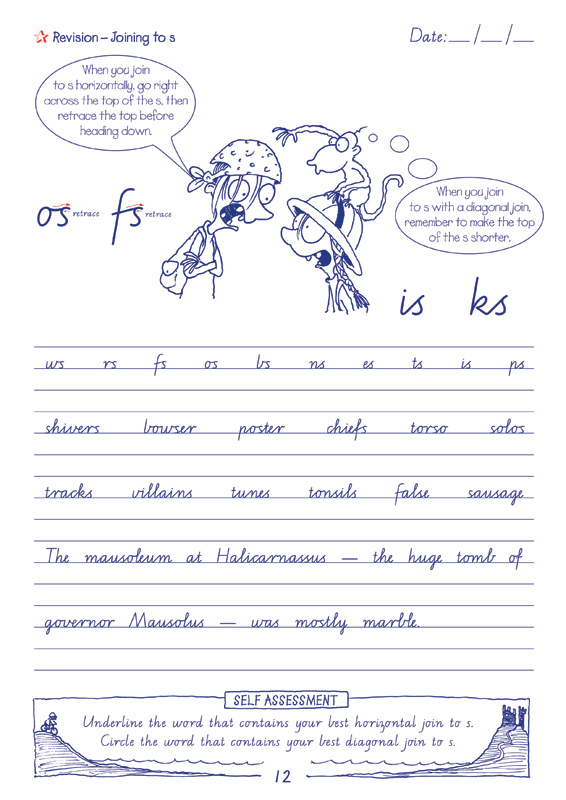 Revision – Joining to s
Date: __ / __ / __
When you join
to s horizontally, go right
across the top of the s, then
retrace the top before
heading down.
os retrace fs retrace
When you join
to s with a diagonal join,
remember to make the top
of the s shorter.
is ks
ws rs fs os bs ns es ts is ps
shivers bowser poster chiefs torso solos
tracks villains tunes tonsils false sausage
The mausoleum at Halicarnassus — the huge tomb of
governor Mausolus — was mostly marble.
SELF ASSESSMENT
Underline the word that contains your best horizontal join to s.
Circle the word that contains your best diagonal join to s.
12